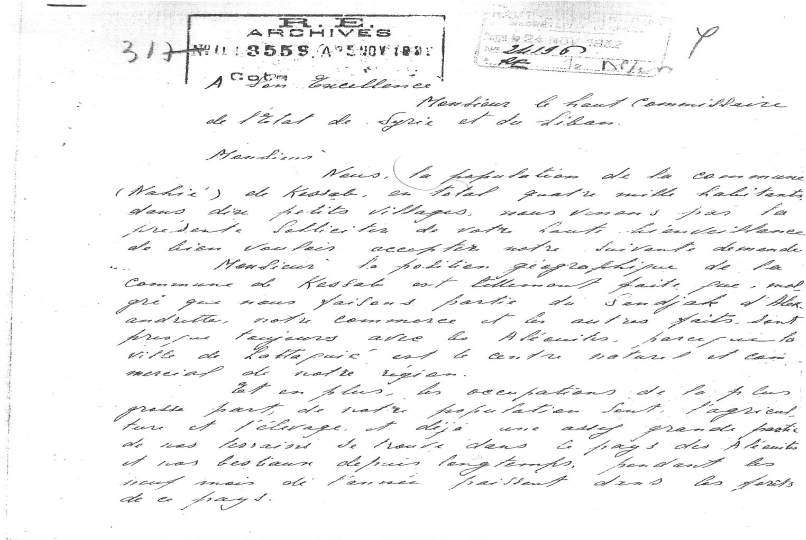 317
R. E.
ARCHIVES
3559
Cote
24 NOV 1932
A Son Excellence
Monsieur le haut Commissaire
de l'Etat de Syrie et du Liban.
Monsieur
Nous, la population de la commune
(Nahié) de Kessab, en total quatre mille habitants
dans dix petits villages, nous venons par la
présente solliciter de votre haute bienveillance
de bien vouloir accepter notre suivante demande
Monsieur la position géographique de la
commune de Kessab est tellement faite, que, mal
gré que nous faisons partie du Sandjak d'Alex
andrette, notre commerce et les autres faits, sont
presque toujours avec les Aléouites, parceque la
ville de Lattaquié est le centre naturel et com
mercial de notre région.
Et en plus, les occupations de la plus
grosse part, de notre population sont, l'agricul
ture et l'élevage, et déjà une assez grande partie
de nos terrains se trouve dans le pays des Aléouites
et nos bestiaux depuis longtemps, pendant les
neuf mois de l'année paissent dans les forêts
de ce pays.